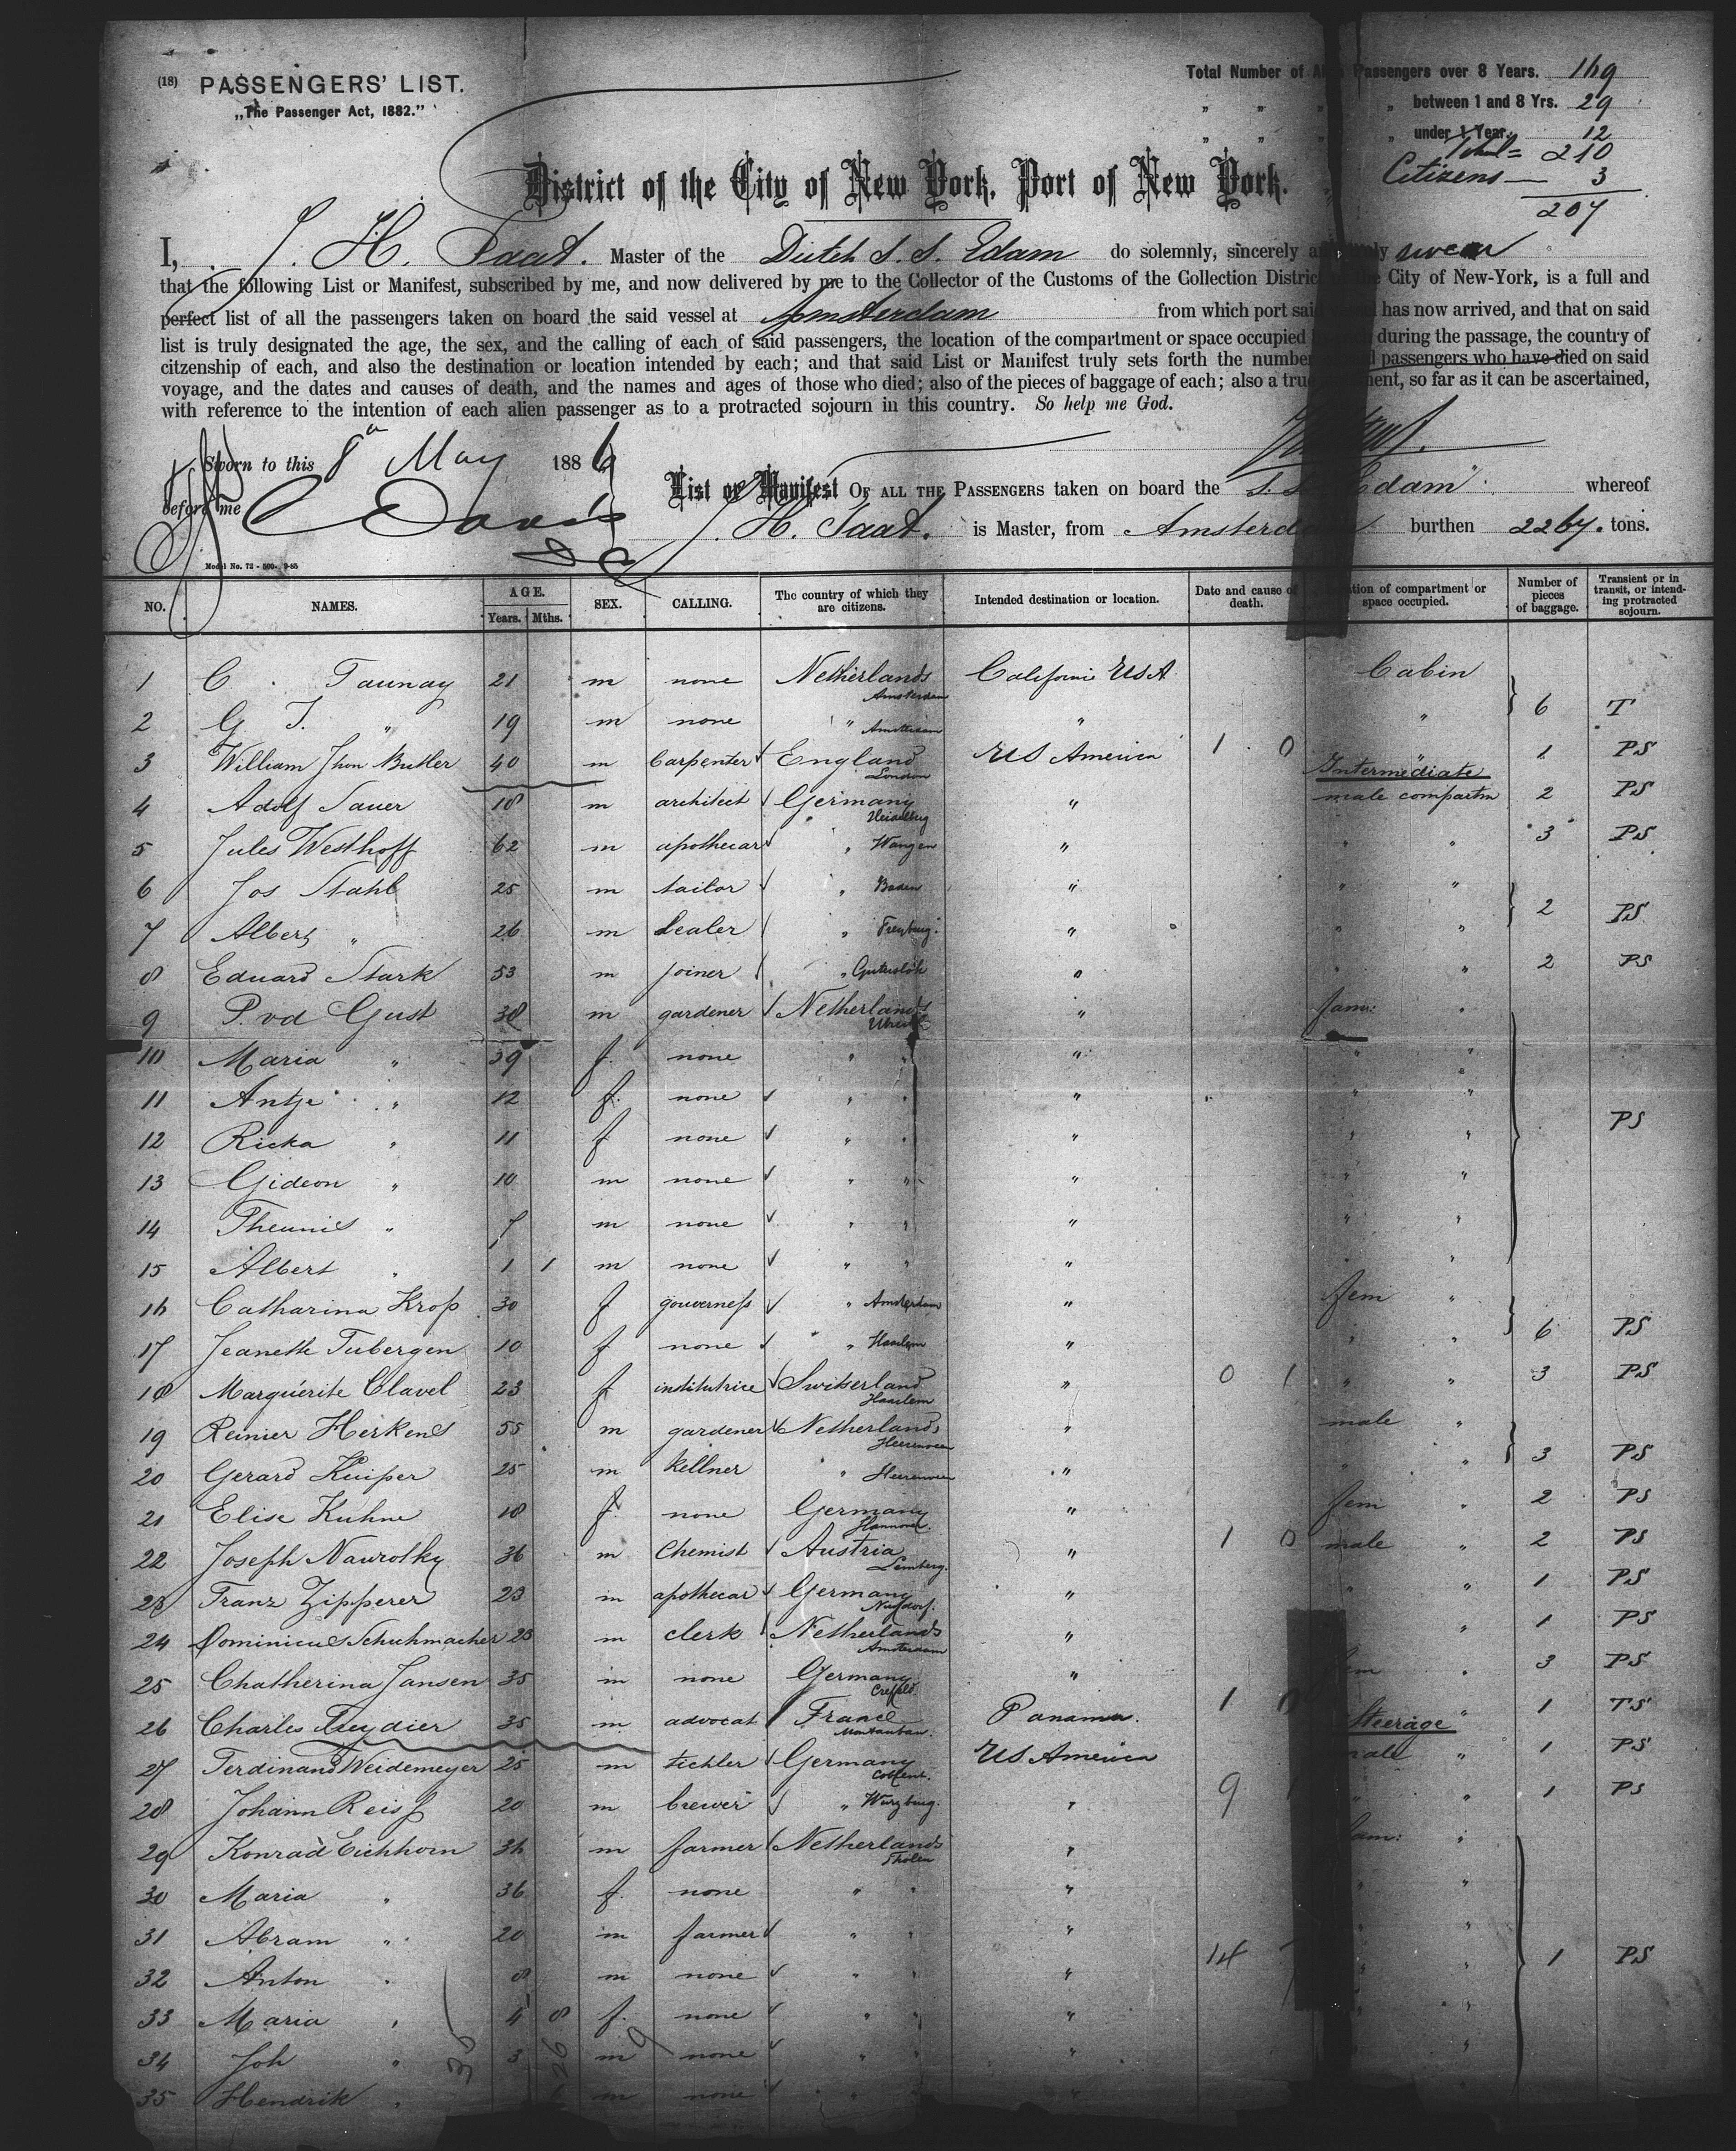 (18) PASSENGERS' LIST.
„The Passenger Act, 1882."
Total Number of Passengers over 8 Years. 169
„ „ „ „ between 1 and 8 Yrs. 29
„ „ „ „ under 1 Year. 12
Total = 210
Citizens — 3
207
District of the City of New York, Port of New York.
I, J. H. Taat. Master of the Dutch S. S. Edam do solemnly, sincerely swear
that the following List or Manifest, subscribed by me, and now delivered by me to the Collector of the Customs of the Collection District City of New-York, is a full and
perfect list of all the passengers taken on board the said vessel at Amsterdam from which port said has now arrived, and that on said
list is truly designated the age, the sex, and the calling of each of said passengers, the location of the compartment or space occupied during the passage, the country of
citzenship of each, and also the destination or location intended by each; and that said List or Manifest truly sets forth the number passengers who have died on said
voyage, and the dates and causes of death, and the names and ages of those who died; also of the pieces of baggage of each; also a true so far as it can be ascertained,
with reference to the intention of each alien passenger as to a protracted sojourn in this country. So help me God.
Sworn to this 8 May 1886
before me C Davis
List or Manifest OF ALL THE PASSENGERS taken on board the S. S. Edam whereof
J. H. Taat. is Master, from Amsterdam burthen 2267. tons.
Model No. 72 - 500- 9-85
NO. NAMES. AGE. Years. Mths. SEX. CALLING. The country of which they are citizens. Intended destination or location. Date and cause of death. compartment or space occupied. Number of pieces of baggage. Transient or in transit, or intending protracted sojourn.
1 C. Taunay 21 m none Netherlands Amsterdam Californi USA Cabin
2 G J. " 19 m none " Amsterdam " " 6 T
3 William Jhon Butler 40 m Carpenter England London US America 1 0 " 1 PS
Intermediate
4 Adolf Sauer 18 m architect Germany Heidelberg " male compartm 2 PS
5 Jules Westhoff 62 m apothecar " Wangen " " " 3 PS
6 Jos Stahl 25 m tailor " Baden " " "
7 Albert " 26 m dealer " Freyburg " " " 2 PS
8 Eduard Stark 53 m joiner " Gutersloh " " " 2 PS
9 P. vd Gust 38 m gardener Netherlands Utrecht " fam: "
10 Maria " 39 f. none " " " " "
11 Antje " 12 f. none " " " " "
12 Ricka " 11 f none " " " " " PS
13 Gideon " 10 m none " " " " "
14 Theunis " 7 m none " " " " "
15 Albert " 1 1 m none " " " " "
16 Catharina Krop 30 f gouverness " Amsterdam " fem "
17 Jeanette Tubergen 10 f none " Haarlem " " " 6 PS
18 Marguérite Clavel 23 f institutrice Switserland Haarlem " 0 1 " " 3 PS
19 Reinier Herkens 55 m gardener Netherlands Heerenveen " male "
20 Gerard Kuiper 25 m Kellner " Heerenveen " " " 3 PS
21 Elise Kuhne 18 f. none Germany Hannover. " fem " 2 PS
22 Joseph Nawrotky 36 m Chemist Austria Lemberg. " 1 0 male " 2 PS
23 Franz Zipperer 23 m apothecar Germany " " " 1 PS
24 Dominicus Schuhmacher 23 m clerk Netherlands Amsterdam " " 1 PS
25 Chatherina Jansen 35 m none Germany Crefeld. " " 3 PS
26 Charles Feydier 35 m advocat France Montauban. Panama. 1 0 " 1 TS
Steerage
27 Ferdinand Weidemeyer 25 m tichler Germany Coblent. US America male " 1 PS
28 Johann Reiss 20 m brewer " Wurzburg. " 9 " " 1 PS
29 Konrad Eichhorn 36 m farmer Netherlands Tholen " fam: "
30 Maria " 36 f. none " " " " "
31 Abram " 20 m farmer " " " " "
32 Anton " 8 m none " " " 14 " " 1 PS
33 Maria " 4 8 f. none " " " " "
34 Joh " 3 m none " " " "
35 Hendrik " m none " " "
35 26 9